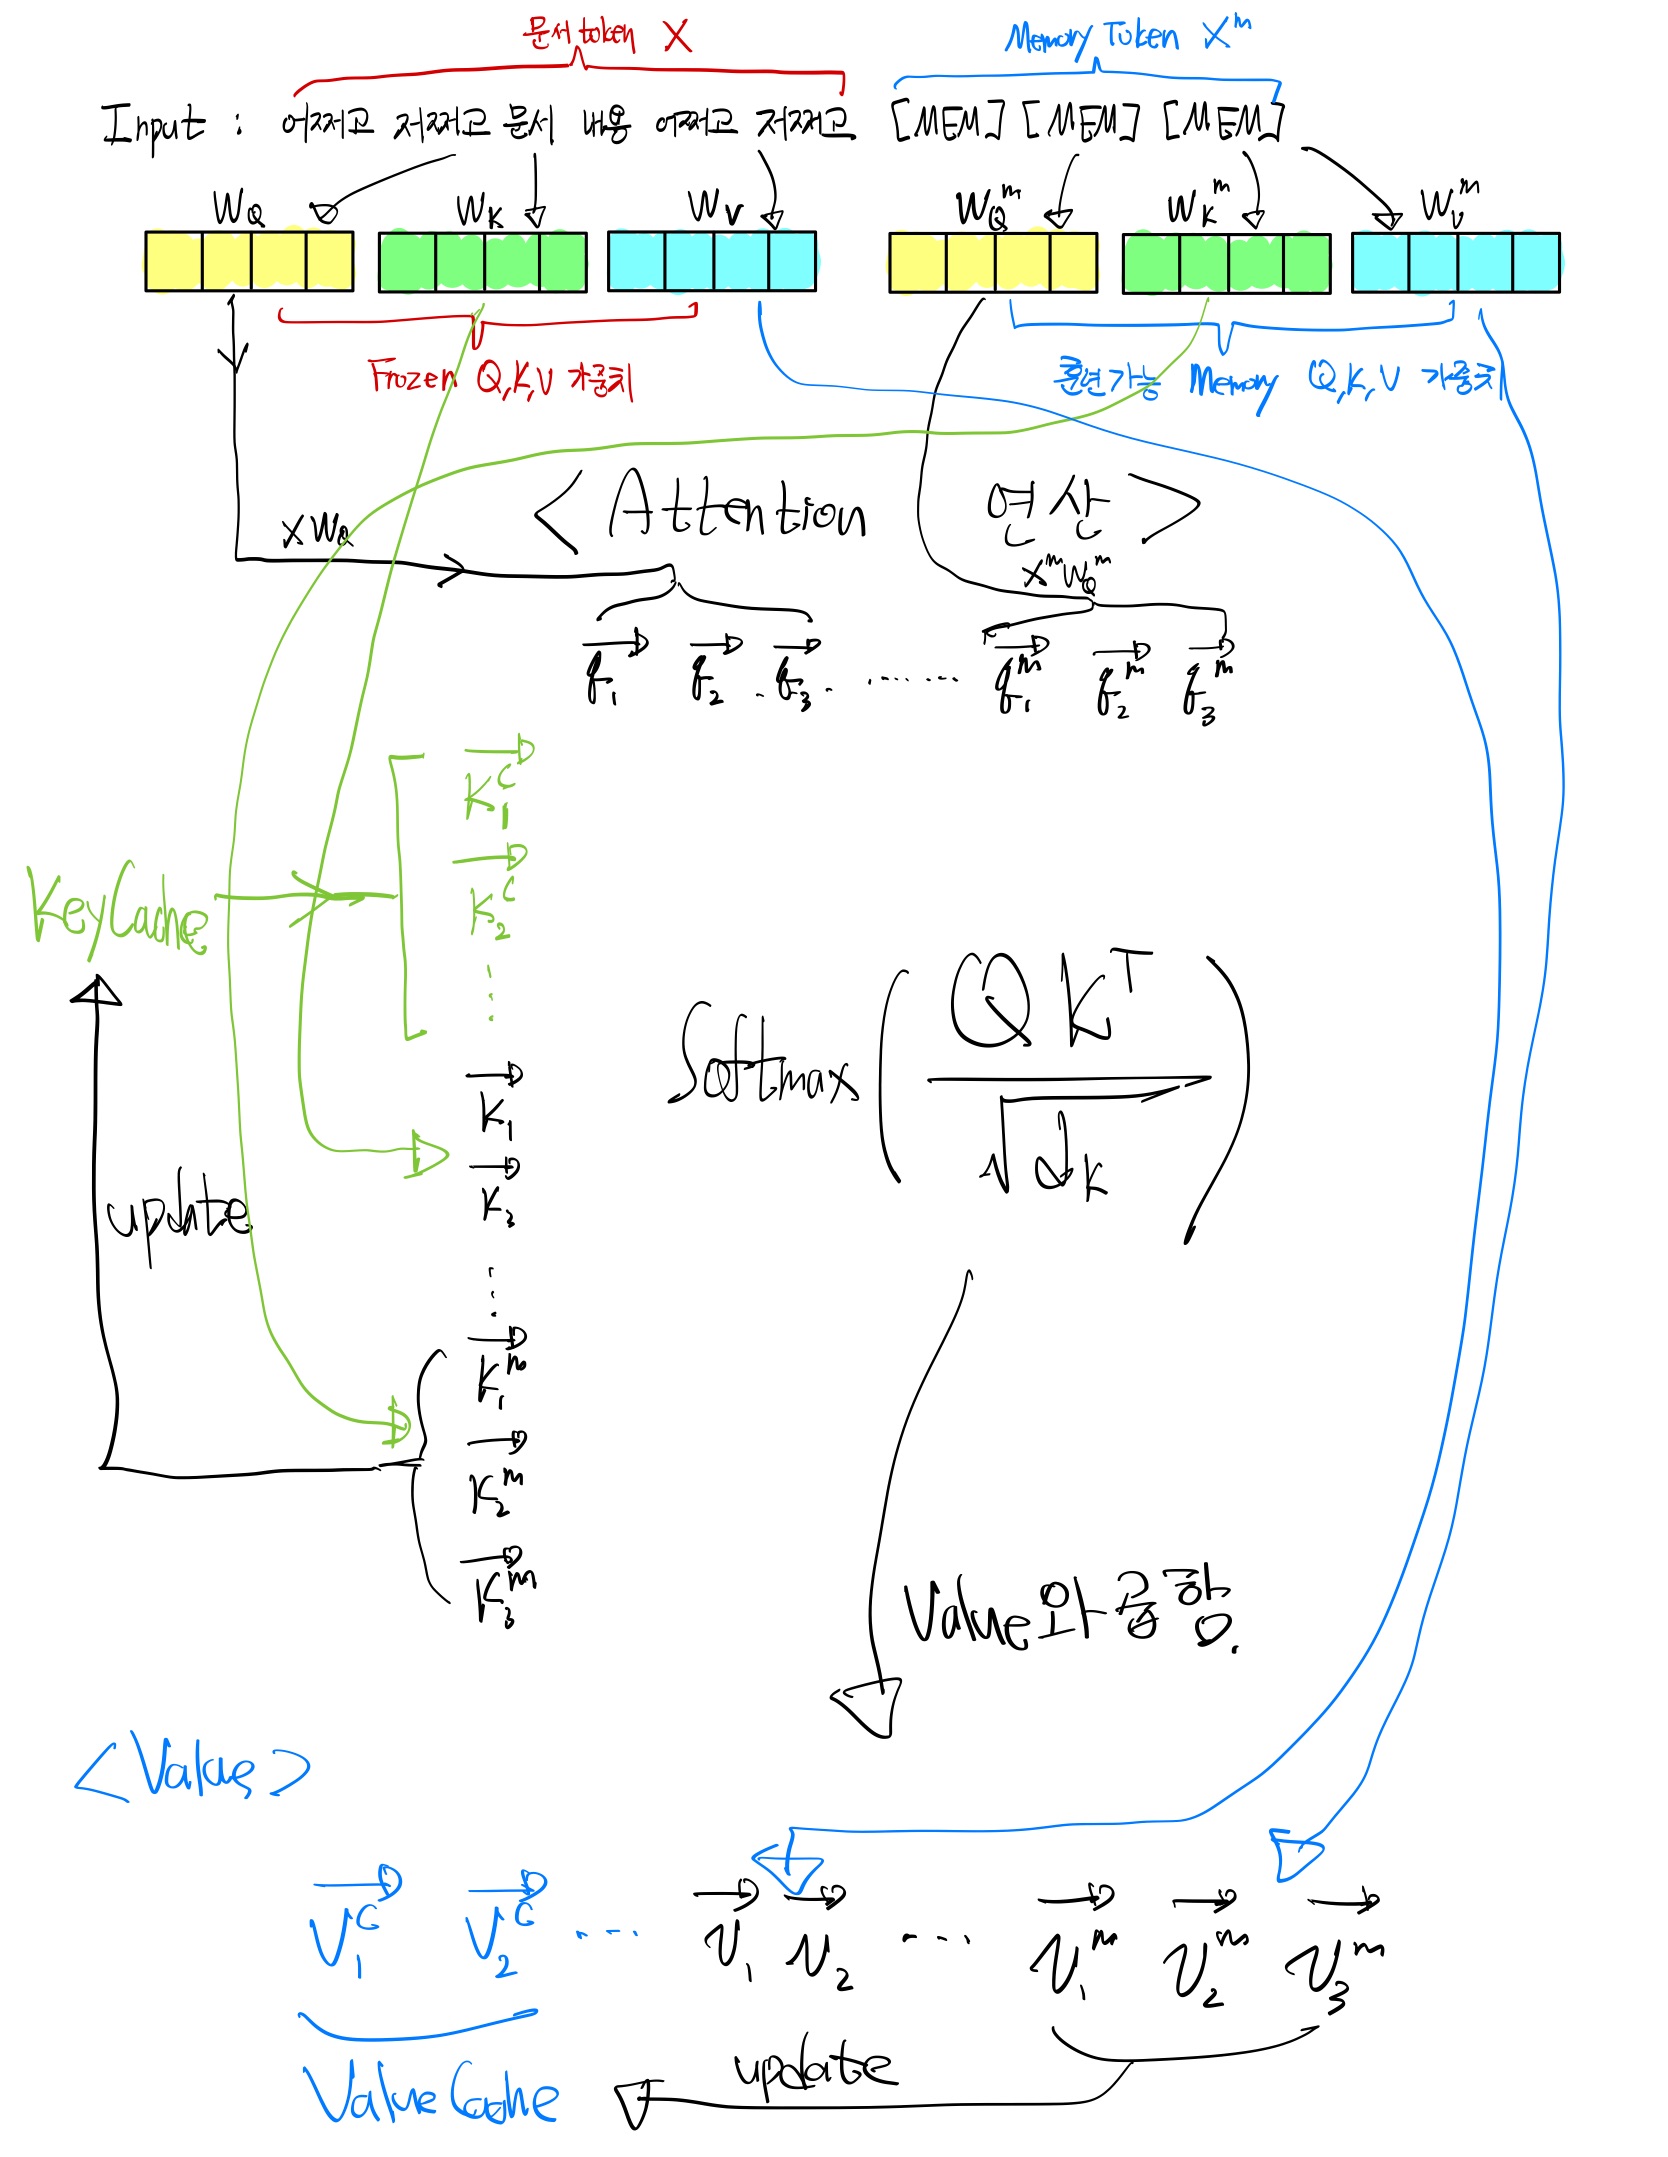 문서 token X
Memory Token X^m
Input : 어쩌고 저쩌고 문서 내용 어쩌고 저쩌고 [MEM] [MEM] [MEM]
W_Q W_K W_V W_Q^m W_K^m W_V^m
Frozen Q,K,V 가중치
훈련가능 Memory Q,K,V 가중치
<Attention 연산>
XW_Q
X^m W_Q^m
q_1 q_2 . q_3 . ...... q_1^m q_2^m q_3^m
K_1^C
K_2^C
⋮
KeyCache
K_1
K_2
⋮
K_1^m
K_2^m
K_3^m
update
Softmax ( QK^T / √d_K )
Value와 곱함.
<Value>
V_1^C V_2^C ... V_1 V_2 ... V_1^m V_2^m V_3^m
Value Cache
update